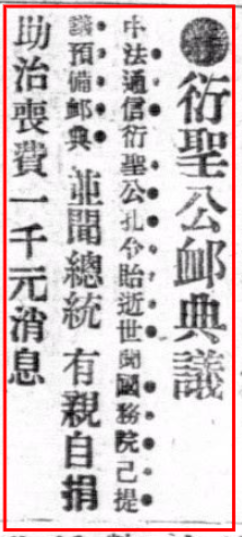 衍聖公邺典議
中法通信衍聖公孔令貽逝世聞國務院已提
議預備邺典 並聞總統 有親自捐
助治喪費一千元消息